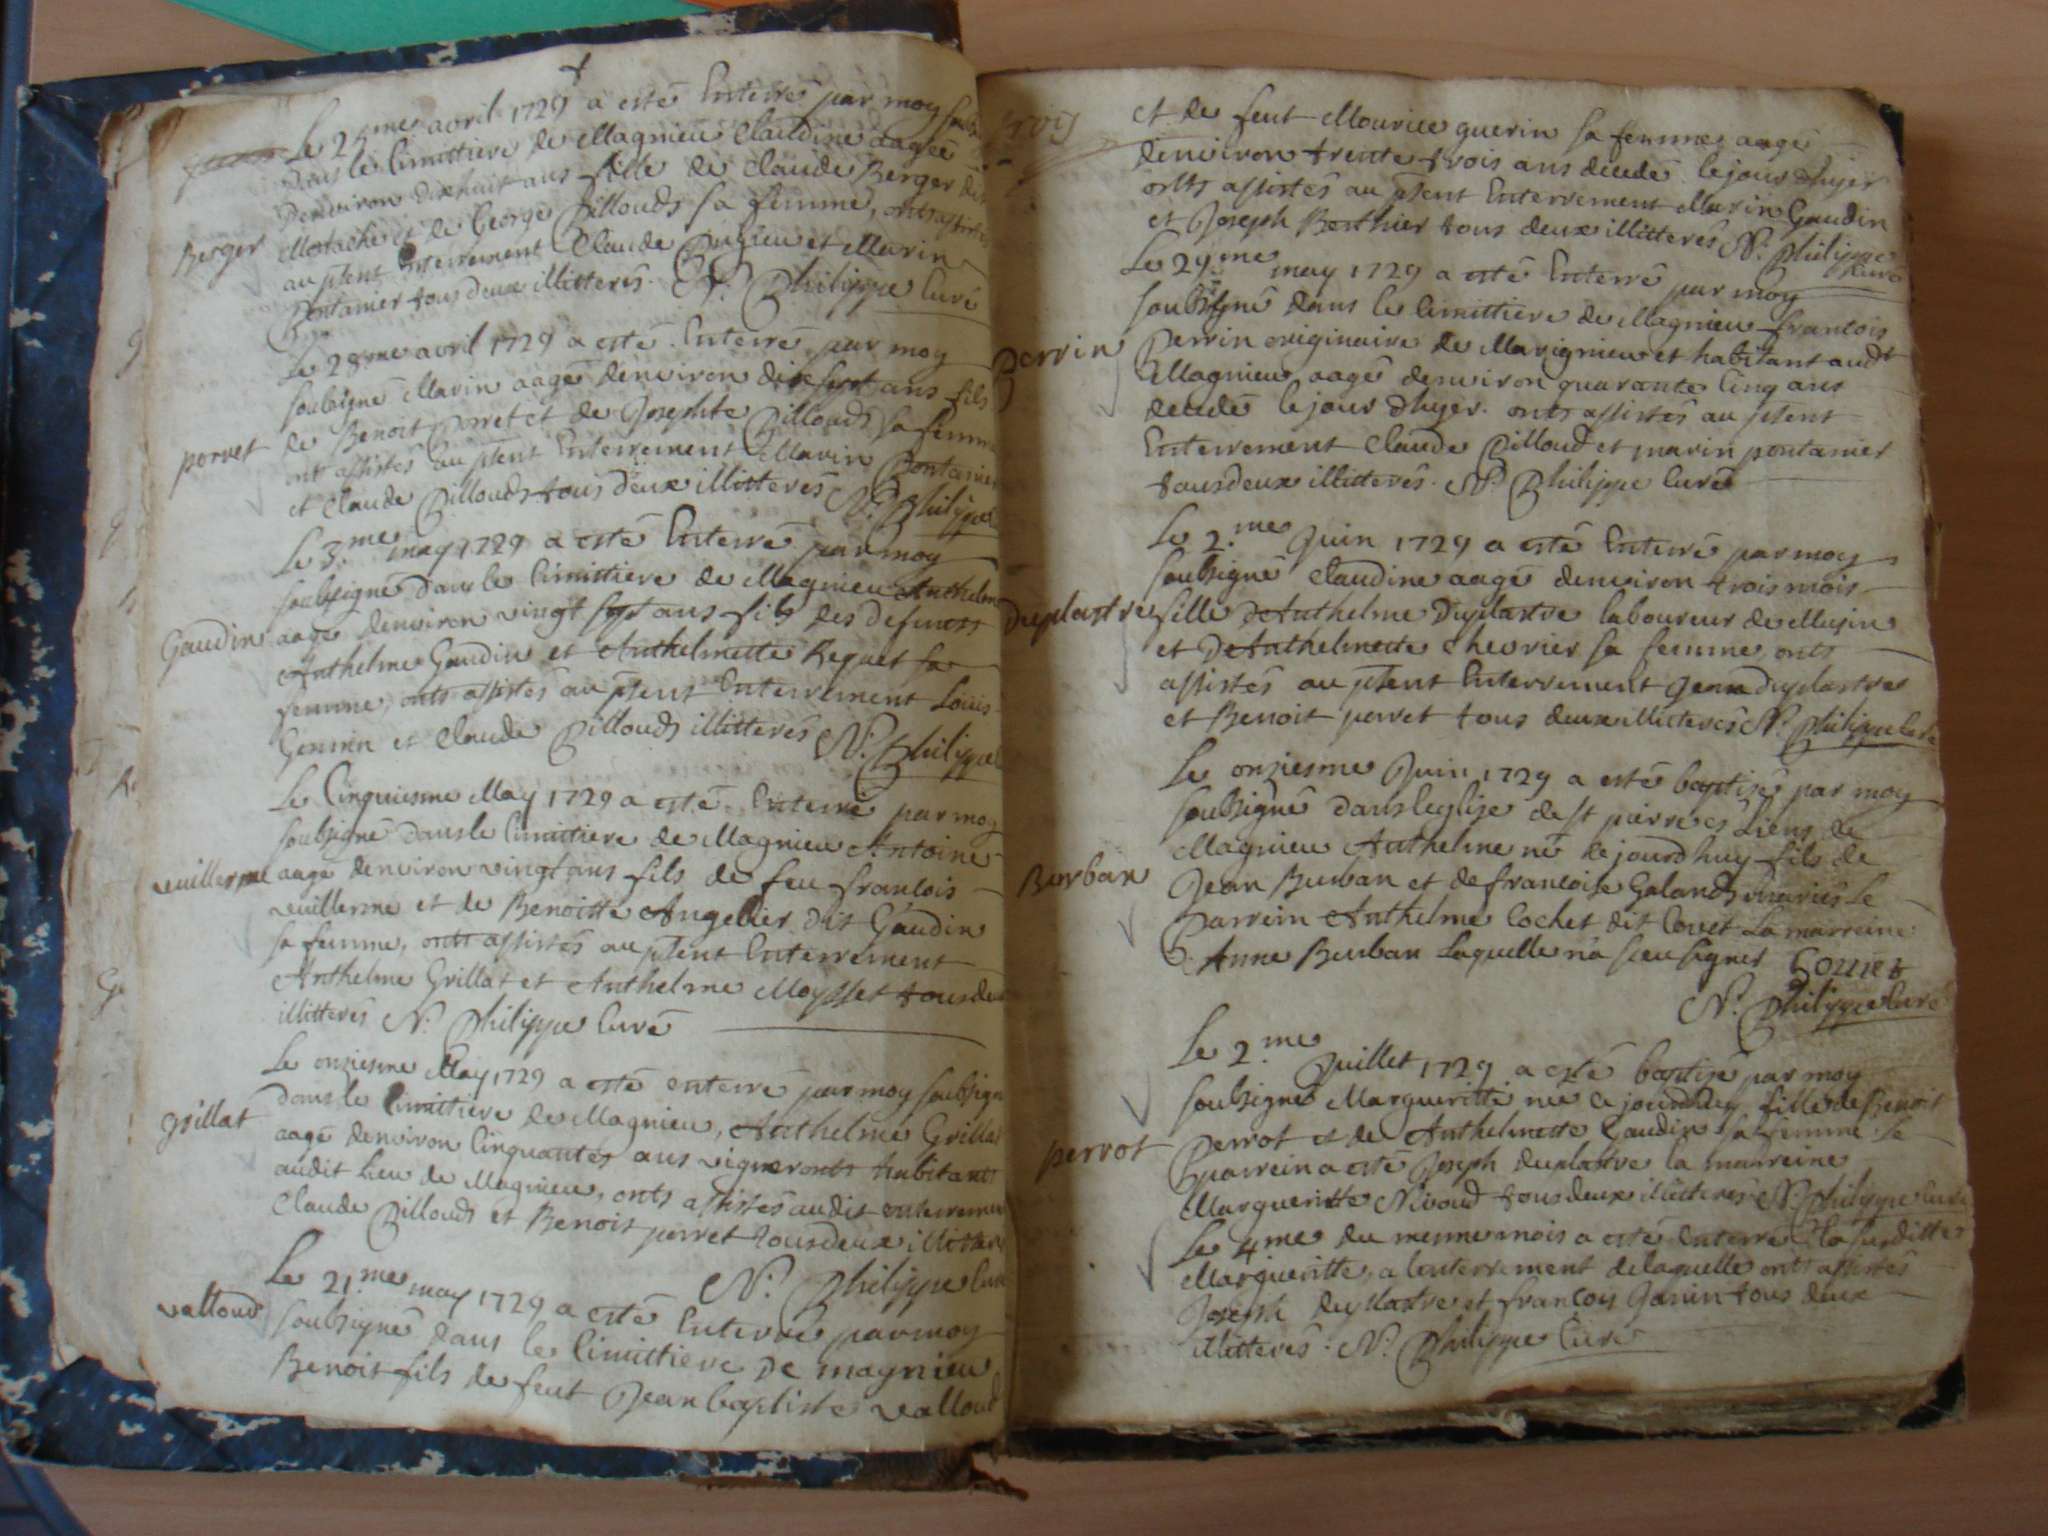 Le 25me avril 1729 a esté Enterré par moy soubs
dans le Cimittiere de Magnieu Claudine aagee
denviron dixhuit ans fille de Claude Berger dit
Berger
Mostache et de George Pillouds sa femme, onts assistés
au pnt Enterrement Claude et Marin
Pontanier tous deux illitterés. N. Philippe Curé
Le 28me avril 1729 a esté Enterré par moy
soubsigné Marin aagé denviron dixsept ans fils
porret
de Benoit porret et de Josephte Pillouds sa femme
ont assistés au pnt Enterrement Marin Pontanier
et Claude Pillouds tous deux illitterés N. Philippe
Le 3.me may 1729 a esté Enterré par moy
soubsigné dans le Cimittiere de Magnieu Anthelme
Gaudin
aagé denviron vingt sept ans fils des defuncts
Anthelme Gaudin et Anthelmette Requet sa
femme, onts assistés au pnt Enterrement Louis
Genin et Claude Pillouds illitterés N. Philippe
Le Cinquiesme May 1729 a esté Enterré par moy
soubsigné dans le Cimittiere de Magnieu Antoine
vuillerme
aagé denviron vingt ans fils de feu francois
vuillerme et de Benoitte Angelier dit Gaudin
sa femme, onts assistés au pnt Enterrement
Anthelme Grillat et Anthelme Moysset tous deux
illitterés N. Philippe Curé
Le onziesme May 1729 a esté enterré par moy soubsigné
dans le Cimittiere de Magnieu, Anthelme Grillat
grillat
aagé denviron Cinquantes ans vigneronts habitants
audit Lieu de Magnieu, onts assistés audit enterrement
Claude Pillouds et Benoit porret tous deux illitterés
N. Philippe Curé
Le 21.me may 1729 a esté Enterré par moy
valloud
soubsigné dans le Cimittiere de magnieu
Benoit fils de feut Jean baptiste valloud
et de feut Mourice guerin sa femme aagé
denviron trente trois ans décédé le jour dhyer
onts assistés au pnt Enterrement Marin Gaudin
et Joseph Berthier tous deux illitterés N. Philippe
Curé
Le 29.me may 1729 a esté Enterré par moy
soubsigné dans le Cimittiere de Magnieu francois
perrin
Perrin originaire de Marignieu et habitant audt
Magnieu aagé denviron quarante Cinq ans
decedé le jour dhyer. onts assistés au pnt
Enterrement Claude Pilloud et marin pontanier
tous deux illitterés. N. Philippe Curé
Le 2.me Juin 1729 a esté Enterré par moy
soubsigné Claudine aagé denviron trois mois
Duplastre
fille dAnthelme Duplastre laboureur de Musin
et dAnthelmette Chevrier sa femme, onts
assistés au pnt Enterrement Jean duplastre
et Benoit perret tous deux illitterés N. Philippe Curé
Le onziesme Juin 1729 a esté baptisé par moy
soubsigné dans leglise de st pierre es Liens de
Magnieu Anthelme né le jourdhuy fils de
Burban
Jean Burban et de francoise Galands mariés Le
Parrein Anthelme Cochet dit Covet La marreine
Anne Burban Laquelle na sceu signer
N. Philippe Curé
Le 2.me Juillet 1729 a esté baptisé par moy
soubsigné Margueritte née ce jourdhuy fille de Benoit
perrot
Perrot et de Anthelmette Gaudin sa femme Le
parrein a esté Joseph duplastre la marreine
Margueritte Nivoud tous deux illitterés N. Philippe Curé
Le 4.me du mesme mois a esté Enterré la susditte
Margueritte, a lenterrement delaquelle onts assistés
Joseph duplastre et françois Janin tous deux
illitterés. N. Philippe Curé